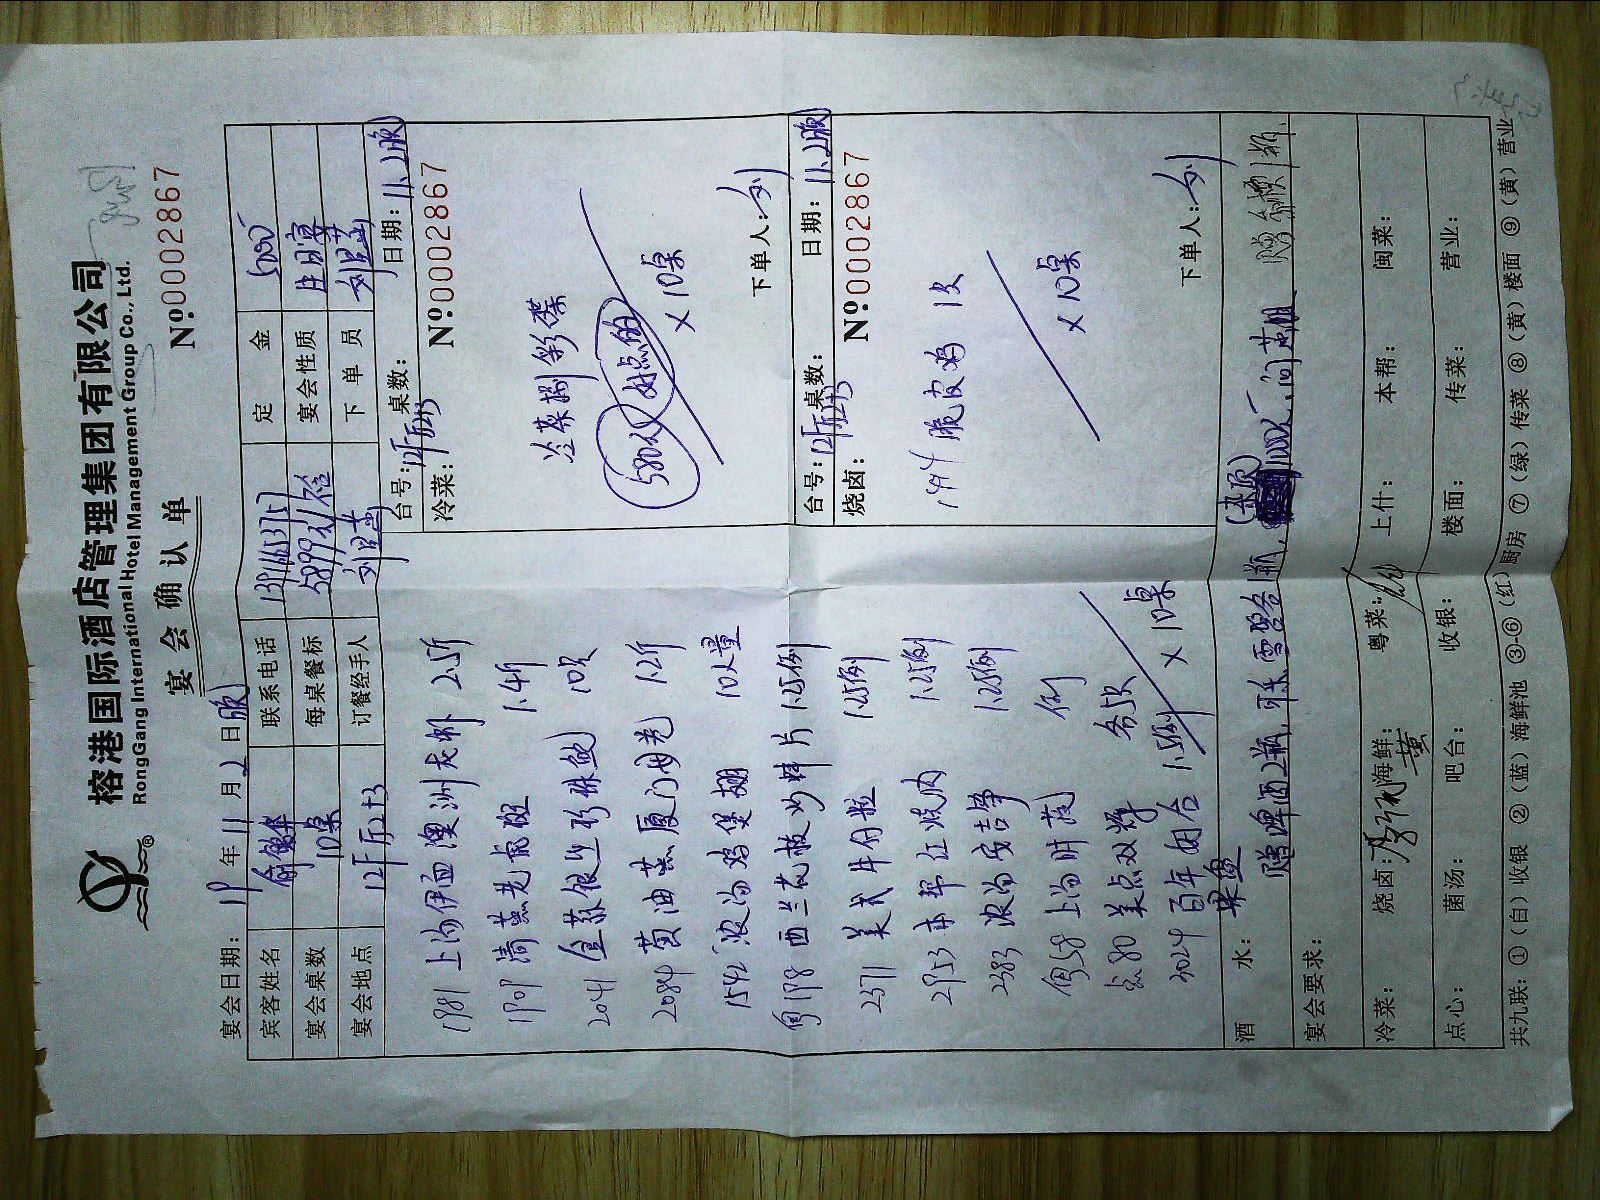 榕港国际酒店管理集团有限公司
RongGang International Hotel Management Group Co., Ltd.
宴会确认单
№0002867
宴会日期: 19年11月2日(晚)
宾客姓名 联系电话 定金 5000
宴会桌数 10桌 每桌餐标 宴会性质 生日宴
宴会地点 订餐经手人 下单员
1981 上汤伊面澳洲龙虾 2.5斤
清蒸老虎斑 1.4斤
2041 金蒜银丝珍珠鲍 10只
2084 黄油蒸厦门母老 1.2斤
1542 浓汤鸡煲翅 10人量
粤198 西兰花 片 1.25例
2371 美式牛仔粒 1.25例
2953 本帮红烧肉 1.25例
2383 浓汤 1.25例
粤58 上汤时蔬 例
点80 美点双辉 各5只
3024 百年好合 1.5例
果盘
×10桌
台号: 桌数: 日期: 11.2(晚)
冷菜: №0002867
冷菜捌彩碟
(580元) (好点的)
×10桌
下单人: 刘
台号: 桌数: 日期: 11.2(晚)
烧卤: №0002867
1494 脆皮鸡 1只
×10桌
下单人: 刘
酒水: 赠啤酒2瓶,可乐雪碧各1瓶,
宴会要求:
冷菜: 烧卤: 海鲜: 粤菜: 上什: 本帮: 闽菜:
点心: 菌汤: 吧台: 收银: 楼面: 传菜: 营业:
共九联: ①(白)收银 ②(蓝)海鲜池 ③-⑥(红)厨房 ⑦(绿)传菜 ⑧(黄)楼面 ⑨(黄)营业